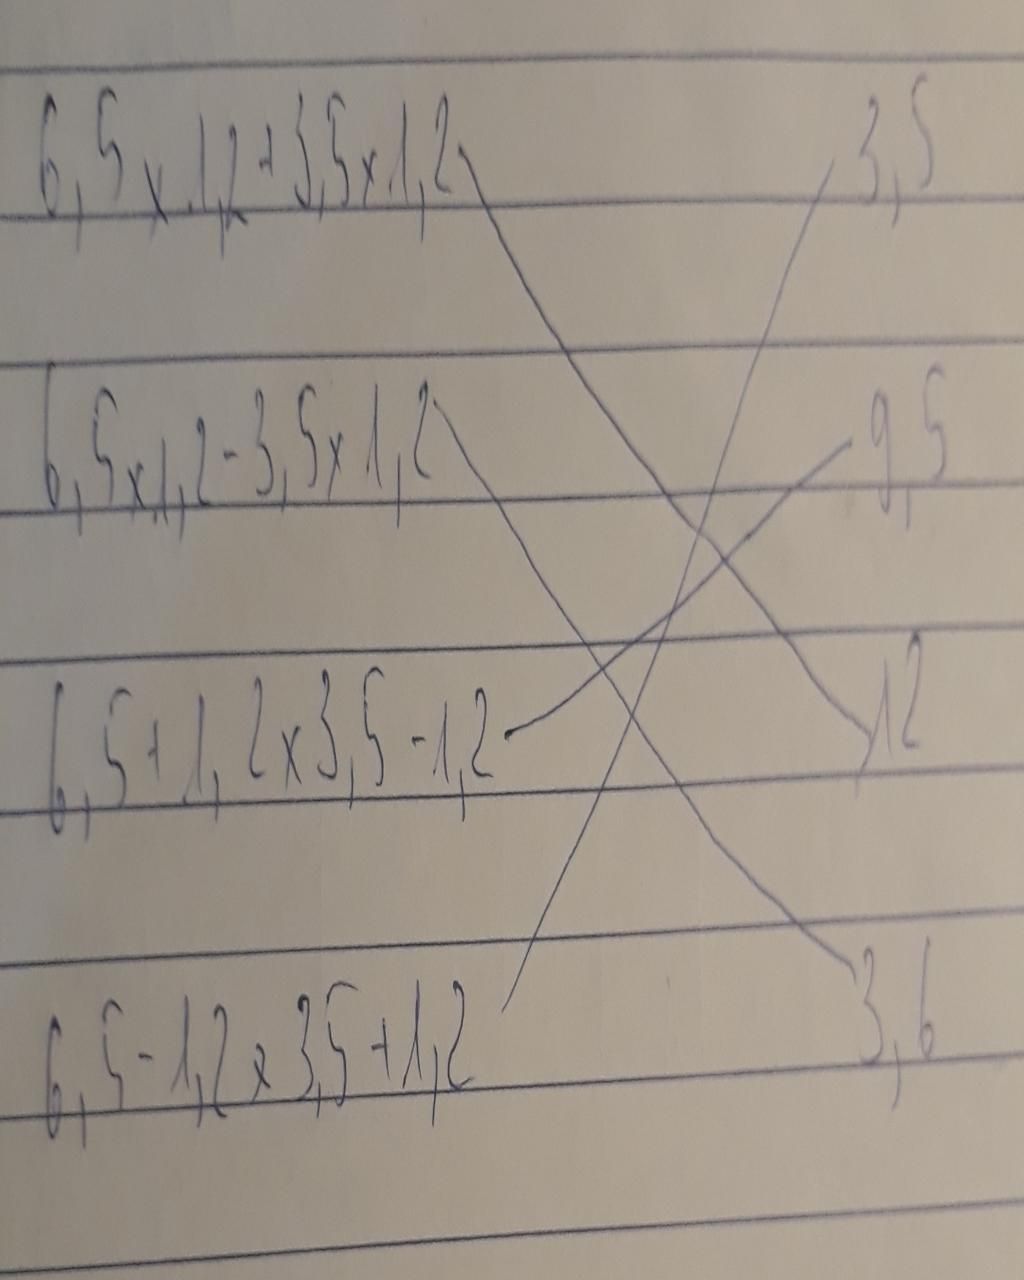 6,5 x 1,2 + 3,5 x 1,2 3,5
6,5 x 1,2 - 3,5 x 1,2 9,5
6,5 + 1,2 x 3,5 - 1,2 12
6,5 - 1,2 x 3,5 + 1,2 3,6